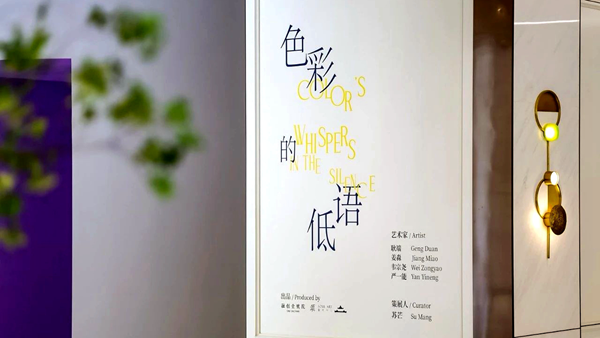 色彩
COLOR'S
的
WHISPERS
IN THE
SILENCE
低语
艺术家 / Artist
耿端 Geng Duan
姜淼 Jiang Miao
韦宗尧 Wei Zongyao
严一能 Yan Yineng
出品 / Produced by
策展人 / Curator
苏芒 Su Mang